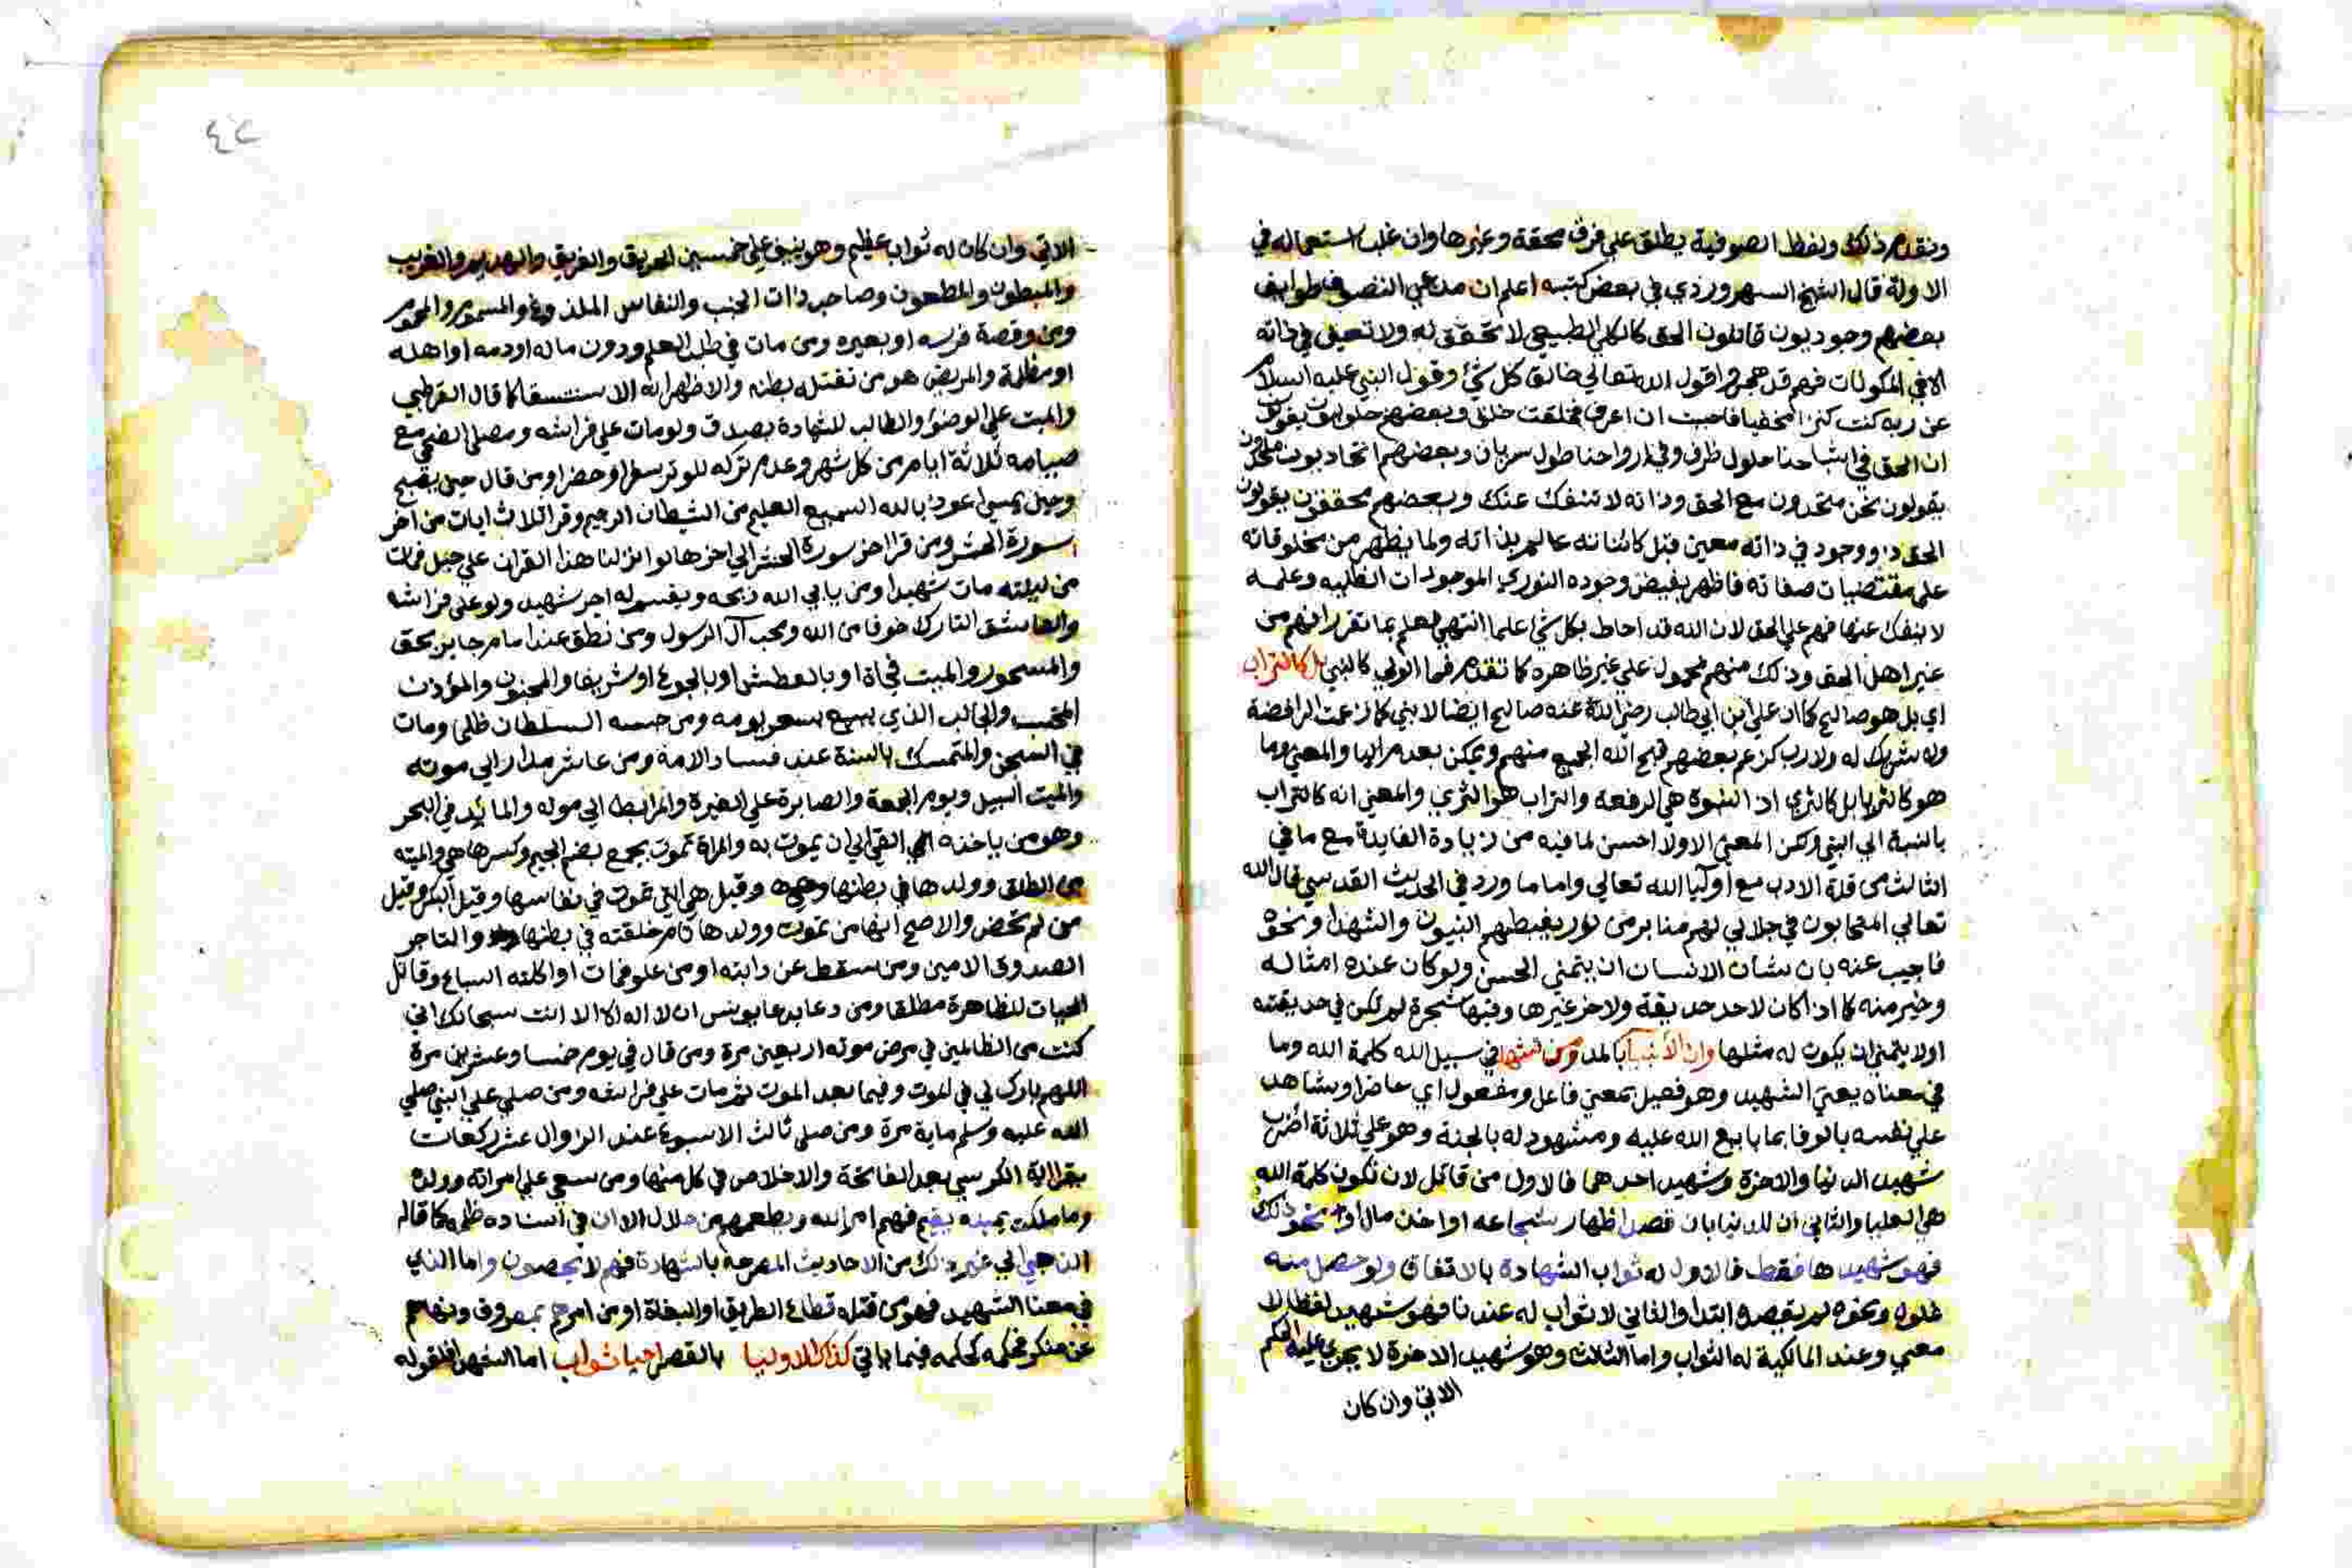 وتقدم ذلك ولفظ الصوفية يطلق على فرق محقة وغيرها وان غلب استعماله في
الاولة قال الشيخ السهروردي في بعض كتبه اعلم ان مدعي التصوف طوايف
بعضهم وجوديون قائلون الحق كالكلي الطبيعي لا تحقق له ولا تعين في ذاته
الا في المكونات فهم قد اقول الله تعالى خالق كل شئ وقول النبي عليه السلام
عن ربه كنت كنزا مخفيا فاحببت ان اعرف فخلقت خلق وبعضهم حلوليون يقولون
ان الحق في اشباحنا حلول ظرف وفي ارواحنا حلول سريان وبعضهم اتحاديون ملحدون
يقولون نحن متحدون مع الحق وذاته لا تنفك عنك وبعضهم محققون يقولون
الحق ذو وجود في ذاته معين قبل كائناته عالم بذاته ولما يظهر من مخلوقاته
على مقتضيات صفاته فاظهر بفيض وجوده النوري الموجودات الظلية وعلمه
لا ينفك عنها فهم على الحق لان الله قد احاط بكل شئ علما انتهى فعلم بما تقرر انهم من
غير اهل الحق وذلك منهم محمول على غير ظاهره كما تقدم فما الولي كالنبي بل كالتراب
اي بل هو صالح كما ان علي ابن ابي طالب رضي الله عنه صالح ايضا لا نبي كما زعمت الرافضة
وله شريك له ولا رب كزعم بعضهم قبح الله الجميع منهم ويمكن بعد مرالها والمعنى وما
هو كالثريا بل كالثرى اذ النبوة هي الرفعة والتراب هو الثرى والمعنى انه كالتراب
بالنسبة الى النبي ولكن المعنى الاول احسن لما فيه من زيادة الفايدة مع ما في
الثالث من قلة الادب مع اوليا الله تعالى واما ما ورد في الحديث القدسي قال الله
تعالى المتحابون في جلالي لهم منابر من نور يغبطهم النبيون والشهدا ونحوه
فاجيب عنه بان شان الانسان ان يتمنى الحسن ولو كان عنده امثاله
وخير منه كما اذا كان لاحد حديقة ولاخر غيرها وفيها شجرة لم تكن في حديقته
اولا يتمنى ان يكون له مثلها وان الأنبيا بالمد ومن في سبيل الله كلمة الله وما
في معناه يعني الشهيد وهو فعيل بمعنى فاعل ومفعول اي حاضر او شاهد
على نفسه بالوفا بما بايع الله عليه ومشهود له بالجنة وهو على ثلاثة اضرب
شهيد الدنيا والاخرة وشهيد احدهما فالاول من قاتل لان تكون كلمة الله
هي العليا والثاني ان للدنيا بان قصد اظهار شجاعه او اخذ مال او نحو ذلك
فهو شهيدها فقط فالاول له ثواب الشهادة بالاتفاق ولو حصل منه
غلول ونحوه لم يقصده ابتدا والثاني لا ثواب له عندنا فهو شهيد لفظا لا
معنى وعند المالكية له الثواب واما الثالث وهو شهيد الاخرة لا يجري عليه الحكم
الاتي وان كان
٤٢
الاتي وان كان له ثواب عظيم وهو ينيف على خمسين الحريق والغريق والهديم والغريب
والمبطون والمطعون وصاحب ذات الجنب والنفاس الملدوغ والمسموم والمحموم
ومن وقصة فرسه او بعيره ومن مات في طلب العلم ودون ماله او دمه او اهله
او مظلمة والمريض هو من تقتله بطنه والاظهر انه الاستسقا كما قال القرطبي
والميت على الوضؤ والطالب للشهادة بصدق ولو مات على فراشه ومصلي الضحى مع
صيامه ثلاثة ايام من كل شهر وعدم تركه للوتر سفرا وحضرا ومن قال حين يصبح
وحين يمسي اعوذ بالله السميع العليم من الشيطان الرجيم وقرا ثلاث ايات من اخر
سورة الحشر ومن قرا اخر سورة الحشر الى اخرها لو انزلنا هذا القران على جبل فمات
من ليلته مات شهيدا ومن يابى الله ذبحه ويقسم له اجر شهيد ولو على فراشه
والعاشق التارك خوفا من الله ومحب آل الرسول ومن نطق عند امام جاير بحق
والمسحور والميت فجاة او بالعطش او بالجوع او شريقا والمجنون والمؤذن
المحتسب والجالب الذي يبيع بسعر يومه ومن حبسه السلطان ظلما ومات
في السجن والمتمسك بالسنة عند فساد الامة ومن عاش مداراى موته
والميت السيل ويوم الجمعة والصابرة على الغيرة والمرابط الى موته والمائد في البحر
وهو من ياخذه القئ الى ان يموت به والمراة تموت بجمع بضم الجيم وكسرها هي والميته
من الطلق وولدها في بطنها وقيل هي التي تموت في نفاسها وقيل البكر وقيل
من لم تحض والاصح انها من تموت وولدها تام خلقته في بطنها والتاجر
الصدوق الامين ومن سقط عن دابته او من علو فمات او اكلته السباع وقاتل
الحيات للظاهرة مطلقا ومن دعا بدعا يونس ان لا اله الا انت سبحانك اني
كنت من الظالمين في مرض موته اربعين مرة ومن قال في يوم خمسا وعشرين مرة
اللهم بارك لي في الموت وفيما بعد الموت ثم مات على فراشه ومن صلى على النبي صلى
الله عليه وسلم ماية مرة ومن صلى ثالث الاسبوع عند الزوال عشر ركعات
يقرا اية الكرسي بعد الفاتحة والاخلاص في كل منها ومن سعى على امراته وولده
وما ملكت يمينه يقيم فيهم امر الله ويطعمهم من حلال الا ان في اسناده ظلمه كما قاله
الذهبي الى غير ذلك من الاحاديث المصرحة بالشهادة فهم لا يحصون واما الذي
في معنا الشهيد فهو من قتله قطاع الطريق او البغاة او من امرهم بمعروف ونهاهم
عن منكر فحكمه كحكمه فيما ياتي كذاك الاوليا بالقصر احيا ثواب اما الشهدا فلقوله